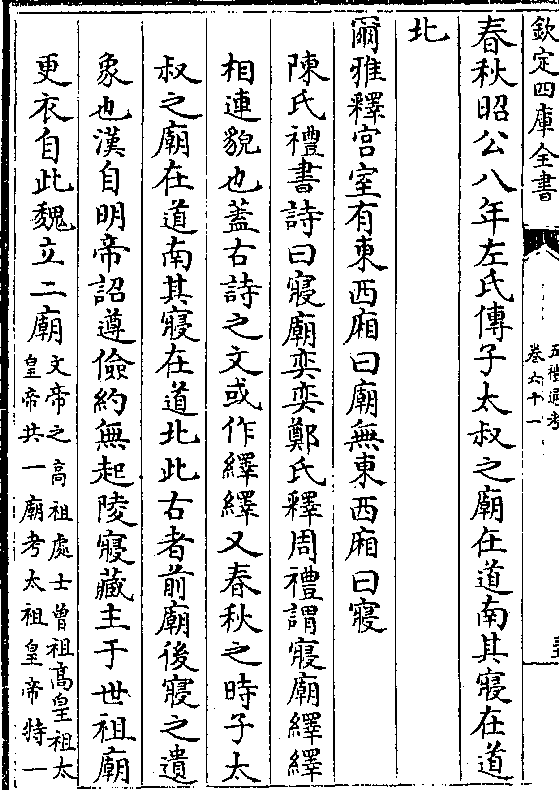 欽定四庫全書
五禮通考
卷六十一
春秋昭公八年左氏傳子太叔之廟在道南其寢在道
北
爾雅釋宫室有東西廂曰廟無東西廂曰寢
陳氏禮書詩曰寢廟奕奕鄭氏釋周禮謂寢廟繹繹
相連貌也蓋古詩之文或作繹繹又春秋之時子太
叔之廟在道南其寢在道北此古者前廟後寢之遺
象也漢自明帝詔遵儉約無起陵寢藏主于世祖廟
更衣自此魏立二廟文帝之高祖處士曾祖髙皇祖太
皇帝共一廟考太祖皇帝特一